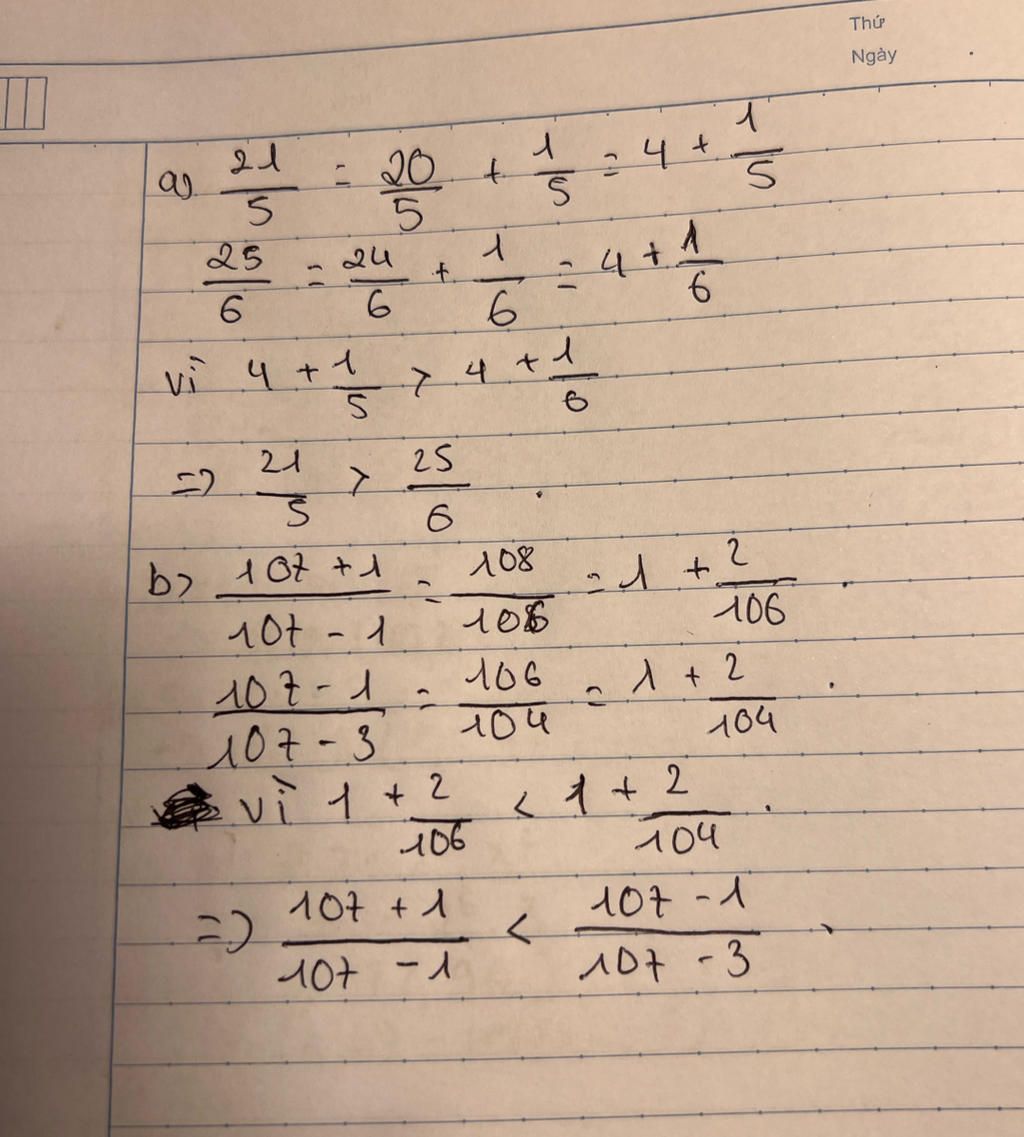 Thứ
Ngày
a) 21/5 = 20/5 + 1/5 = 4 + 1/5
25/6 = 24/6 + 1/6 = 4 + 1/6
vì 4 + 1/5 > 4 + 1/6
=> 21/5 > 25/6 .
b) (107 + 1)/(107 - 1) = 108/106 = 1 + 2/106 .
(107 - 1)/(107 - 3) = 106/104 = 1 + 2/104 .
vì 1 + 2/106 < 1 + 2/104 .
=> (107 + 1)/(107 - 1) < (107 - 1)/(107 - 3) .